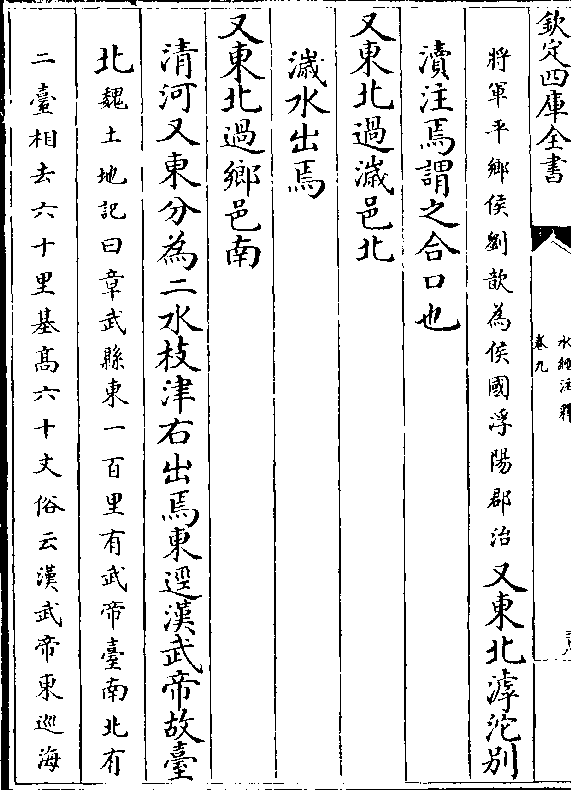 欽定四庫全書
水經注釋
卷九
將軍平鄉侯劉歆為侯國浮陽郡治又東北滹沱別
瀆注焉謂之合口也
又東北過濊邑北
濊水出焉
又東北過鄉邑南
清河又東分為二水枝津右出焉東逕漢武帝故臺
北魏土地記曰章武縣東一百里有武帝臺南北有
二臺相去六十里基髙六十丈俗云漢武帝東巡海